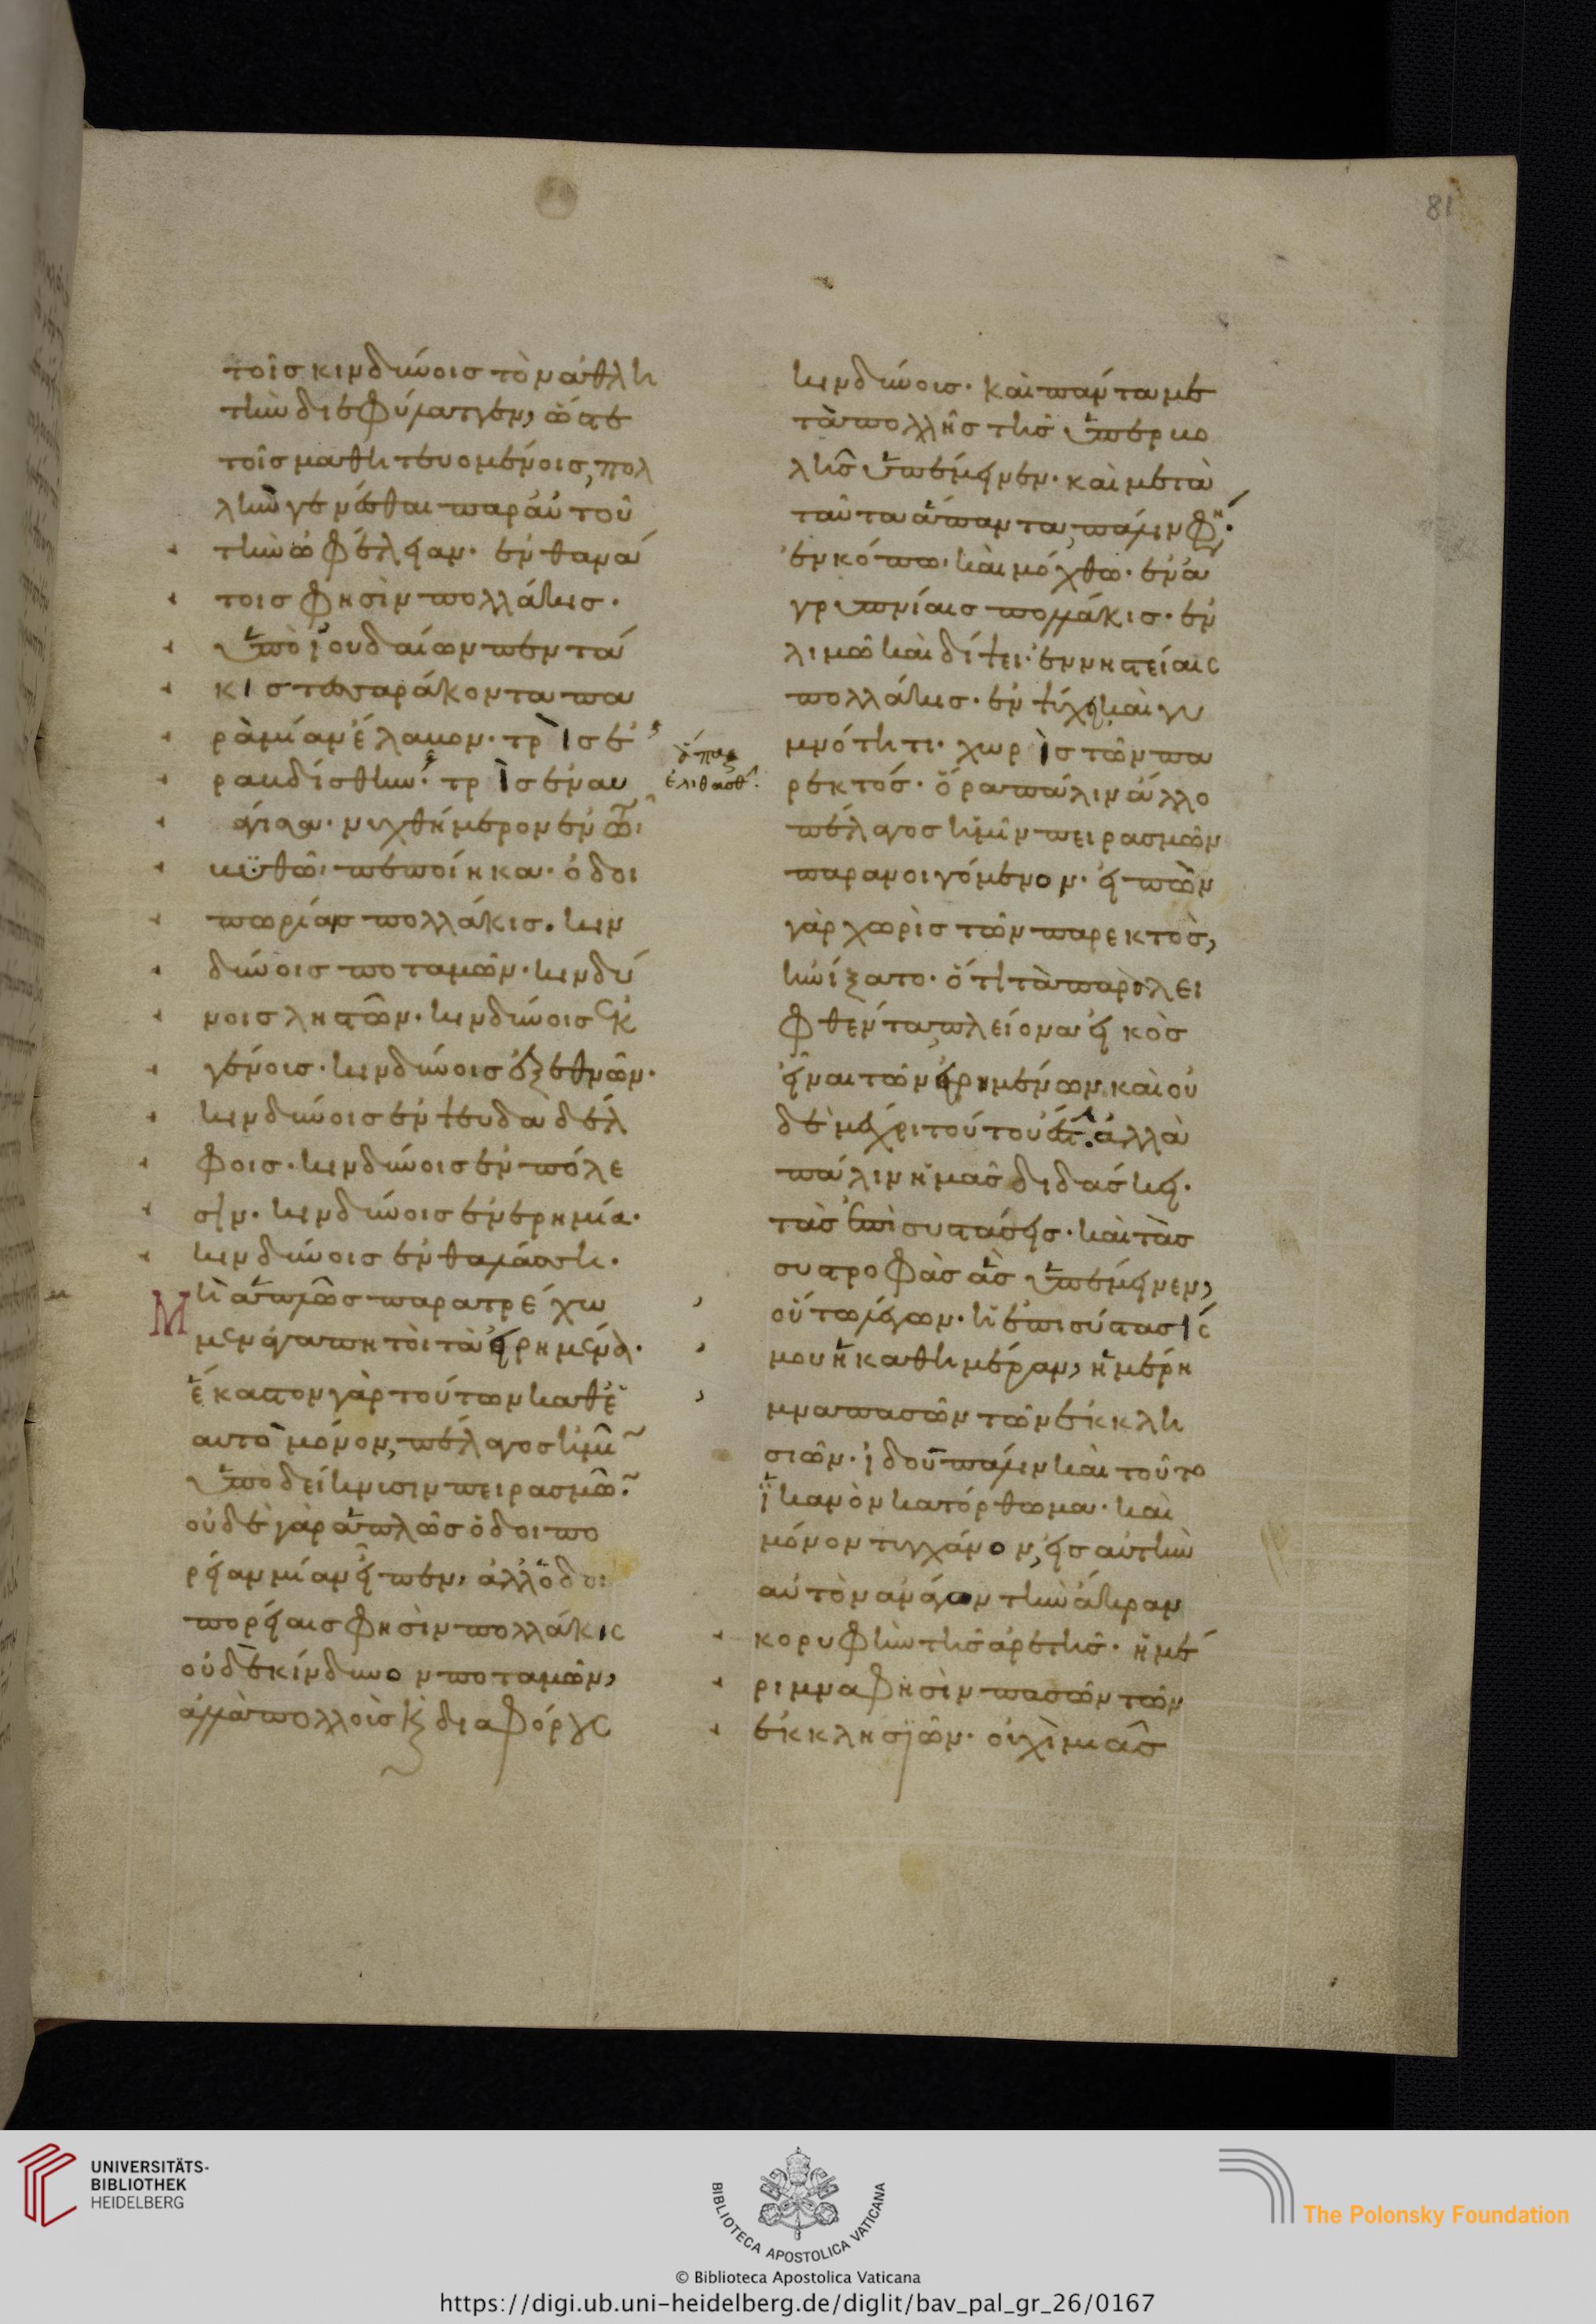 81
τοῖς κινδύνοις τὸν ἀθλη
τὴν διεφύλαττεν, ὥστε
τοῖς μαθητευομένοις, πολ
λὴν γενέσθαι παρ αὐτοῦ
τὴν ὠφέλειαν· ἐν θανά
τοις φησὶν πολλάκις·
ὑπὸ ἰουδαίων πεντά
κις τεσσαράκοντα πα
ρὰ μίαν ἔλαβον· τρὶς ἐ
ραβδίσθην· τρὶς ἐναυ
άγισα· νυχθήμερον ἐν τῶ
βυθῶ πεποίηκα· ὁδοι
πωρίαις πολλάκις· κιν
δύνοις ποταμῶν· κινδύ
νοις ληστῶν· κινδύνοις ἐκ
γένοις· κινδύνοις ἐξ ἐθνῶν·
κινδύνοις ἐν ψευδαδέλ
φοις· κινδύνοις ἐν πόλε
σιν· κινδύνοις ἐν ἐρημία·
κινδύνοις ἐν θαλάσση·
Μὴ ἁπλῶς παρατρέχω
μεν ἀγαπητοὶ τὰ εἰρημένα·
ἕκαστον γὰρ τούτων καθ ἑ
αυτὸ μόνον, πέλαγος ἡμῖ
ὑποδείκνυσιν πειρασμῶ·
οὐδὲ γὰρ ἁπλῶς ὁδοιπο
ρείαν μίαν εἶπεν, ἀλλ ὁδοι
πορείαις φησὶν πολλάκις
οὐδὲ κίνδυνον ποταμῶν,
ἀλλὰ πολλοὺς καὶ διαφόρους
ἅπαξ
ἐλιθάσθ
κινδύνοις· καὶ πάντα με
τὰ πολλῆς τῆς ὑπερβο
λῆς ὑπέμεινεν· καὶ μετὰ
ταῦτα ἅπαντα, πάλιν φη·
ἐν κόπω· καὶ μόχθω· ἐν ἀ
γρυπνίαις πολλάκις· ἐν
λιμῶ καὶ δίψει· ἐν νηστείαις
πολλάκις· ἐν ψύχει καὶ γυ
μνότητι· χωρὶς τῶν πα
ρεκτός· ὅρα πάλιν ἄλλο
πέλαγος ἡμῖν πειρασμῶν
παρανοιγόμενον· εἰπὼν
γὰρ χωρὶς τῶν παρεκτὸς,
ἠνίξατο· ὅτι τὰ παραλει
φθέντα, πλείονα εἰκὸς
εἶναι τῶν εἰρημένων καὶ οὐ
δὲ μέχρι τούτου ἀλλὰ
πάλιν ἡμᾶς διδάσκει·
τὰς ἐπισυστάσεις· καὶ τὰς
συστροφὰς ἃς ὑπέμεινεν,
οὕτω λέγων· ἡ ἐπισύστασίς
μου ἡ καθ ἡμέραν, ἡ μέρη
μνα πασῶν τῶν ἐκκλη
σιῶν· ἰδοῦ πάλιν καὶ τοῦτο
ἱκανὸν κατόρθωμα· καὶ
μόνον τυγχάνον, εἰς αὐτὴν
αὐτὸν ἀνάγον τὴν ἄκραν
κορυφὴν τῆς ἀρετῆς· ἡ μέ
ριμνα φησὶν πασῶν τῶν
ἐκκλησιῶν· οὐχὶ μιᾶς
UNIVERSITÄTS-
BIBLIOTHEK
HEIDELBERG
BIBLIOTECA APOSTOLICA VATICANA
© Biblioteca Apostolica Vaticana
The Polonsky Foundation
https://digi.ub.uni-heidelberg.de/diglit/bav_pal_gr_26/0167